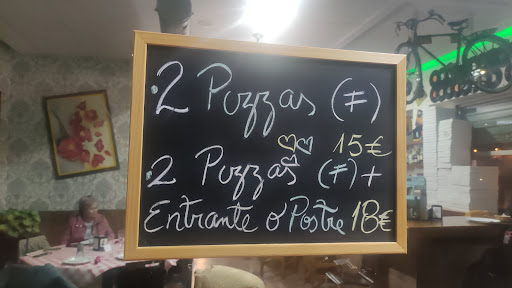 ·2 Pizzas (F)
15€
·2 Pizzas (F) +
Entrante o Postre 18€